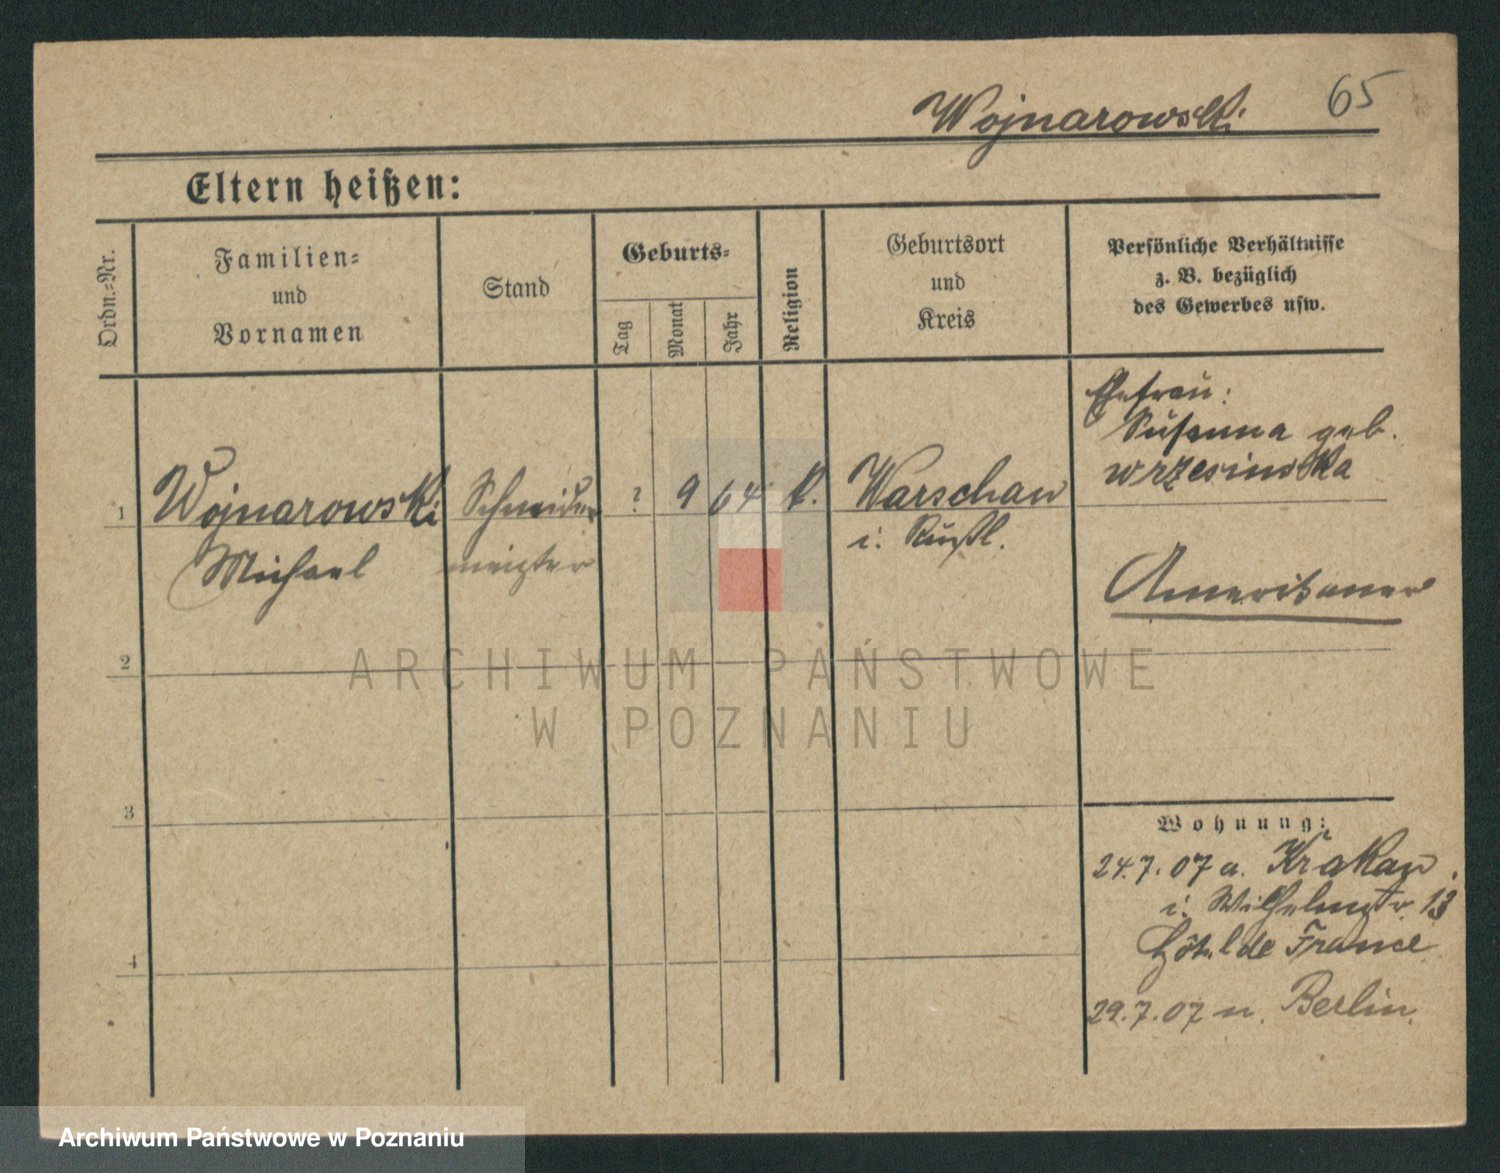 65
Wojnarowski
Eltern heißen:
Ordn.-Nr.
Familien-
und
Vornamen
Stand
Geburts-
Tag
Monat
Jahr
Religion
Geburtsort
und
Kreis
Persönliche Verhältnisse
z. B. bezüglich
des Gewerbes usw.
Ehefrau:
Susanna geb.
Wrzesinska
1 Wojnarowski Schneider ? 9 64 k. Warschau
Michael meister i. Rußl.
Amerikaner
2
3
4
Wohnung:
24.7.07 a. Krakau.
i. Wilhelmstr. 13
Hôtel de France
29.7.07 n. Berlin.
ARCHIWUM PAŃSTWOWE
W POZNANIU
Archiwum Państwowe w Poznaniu